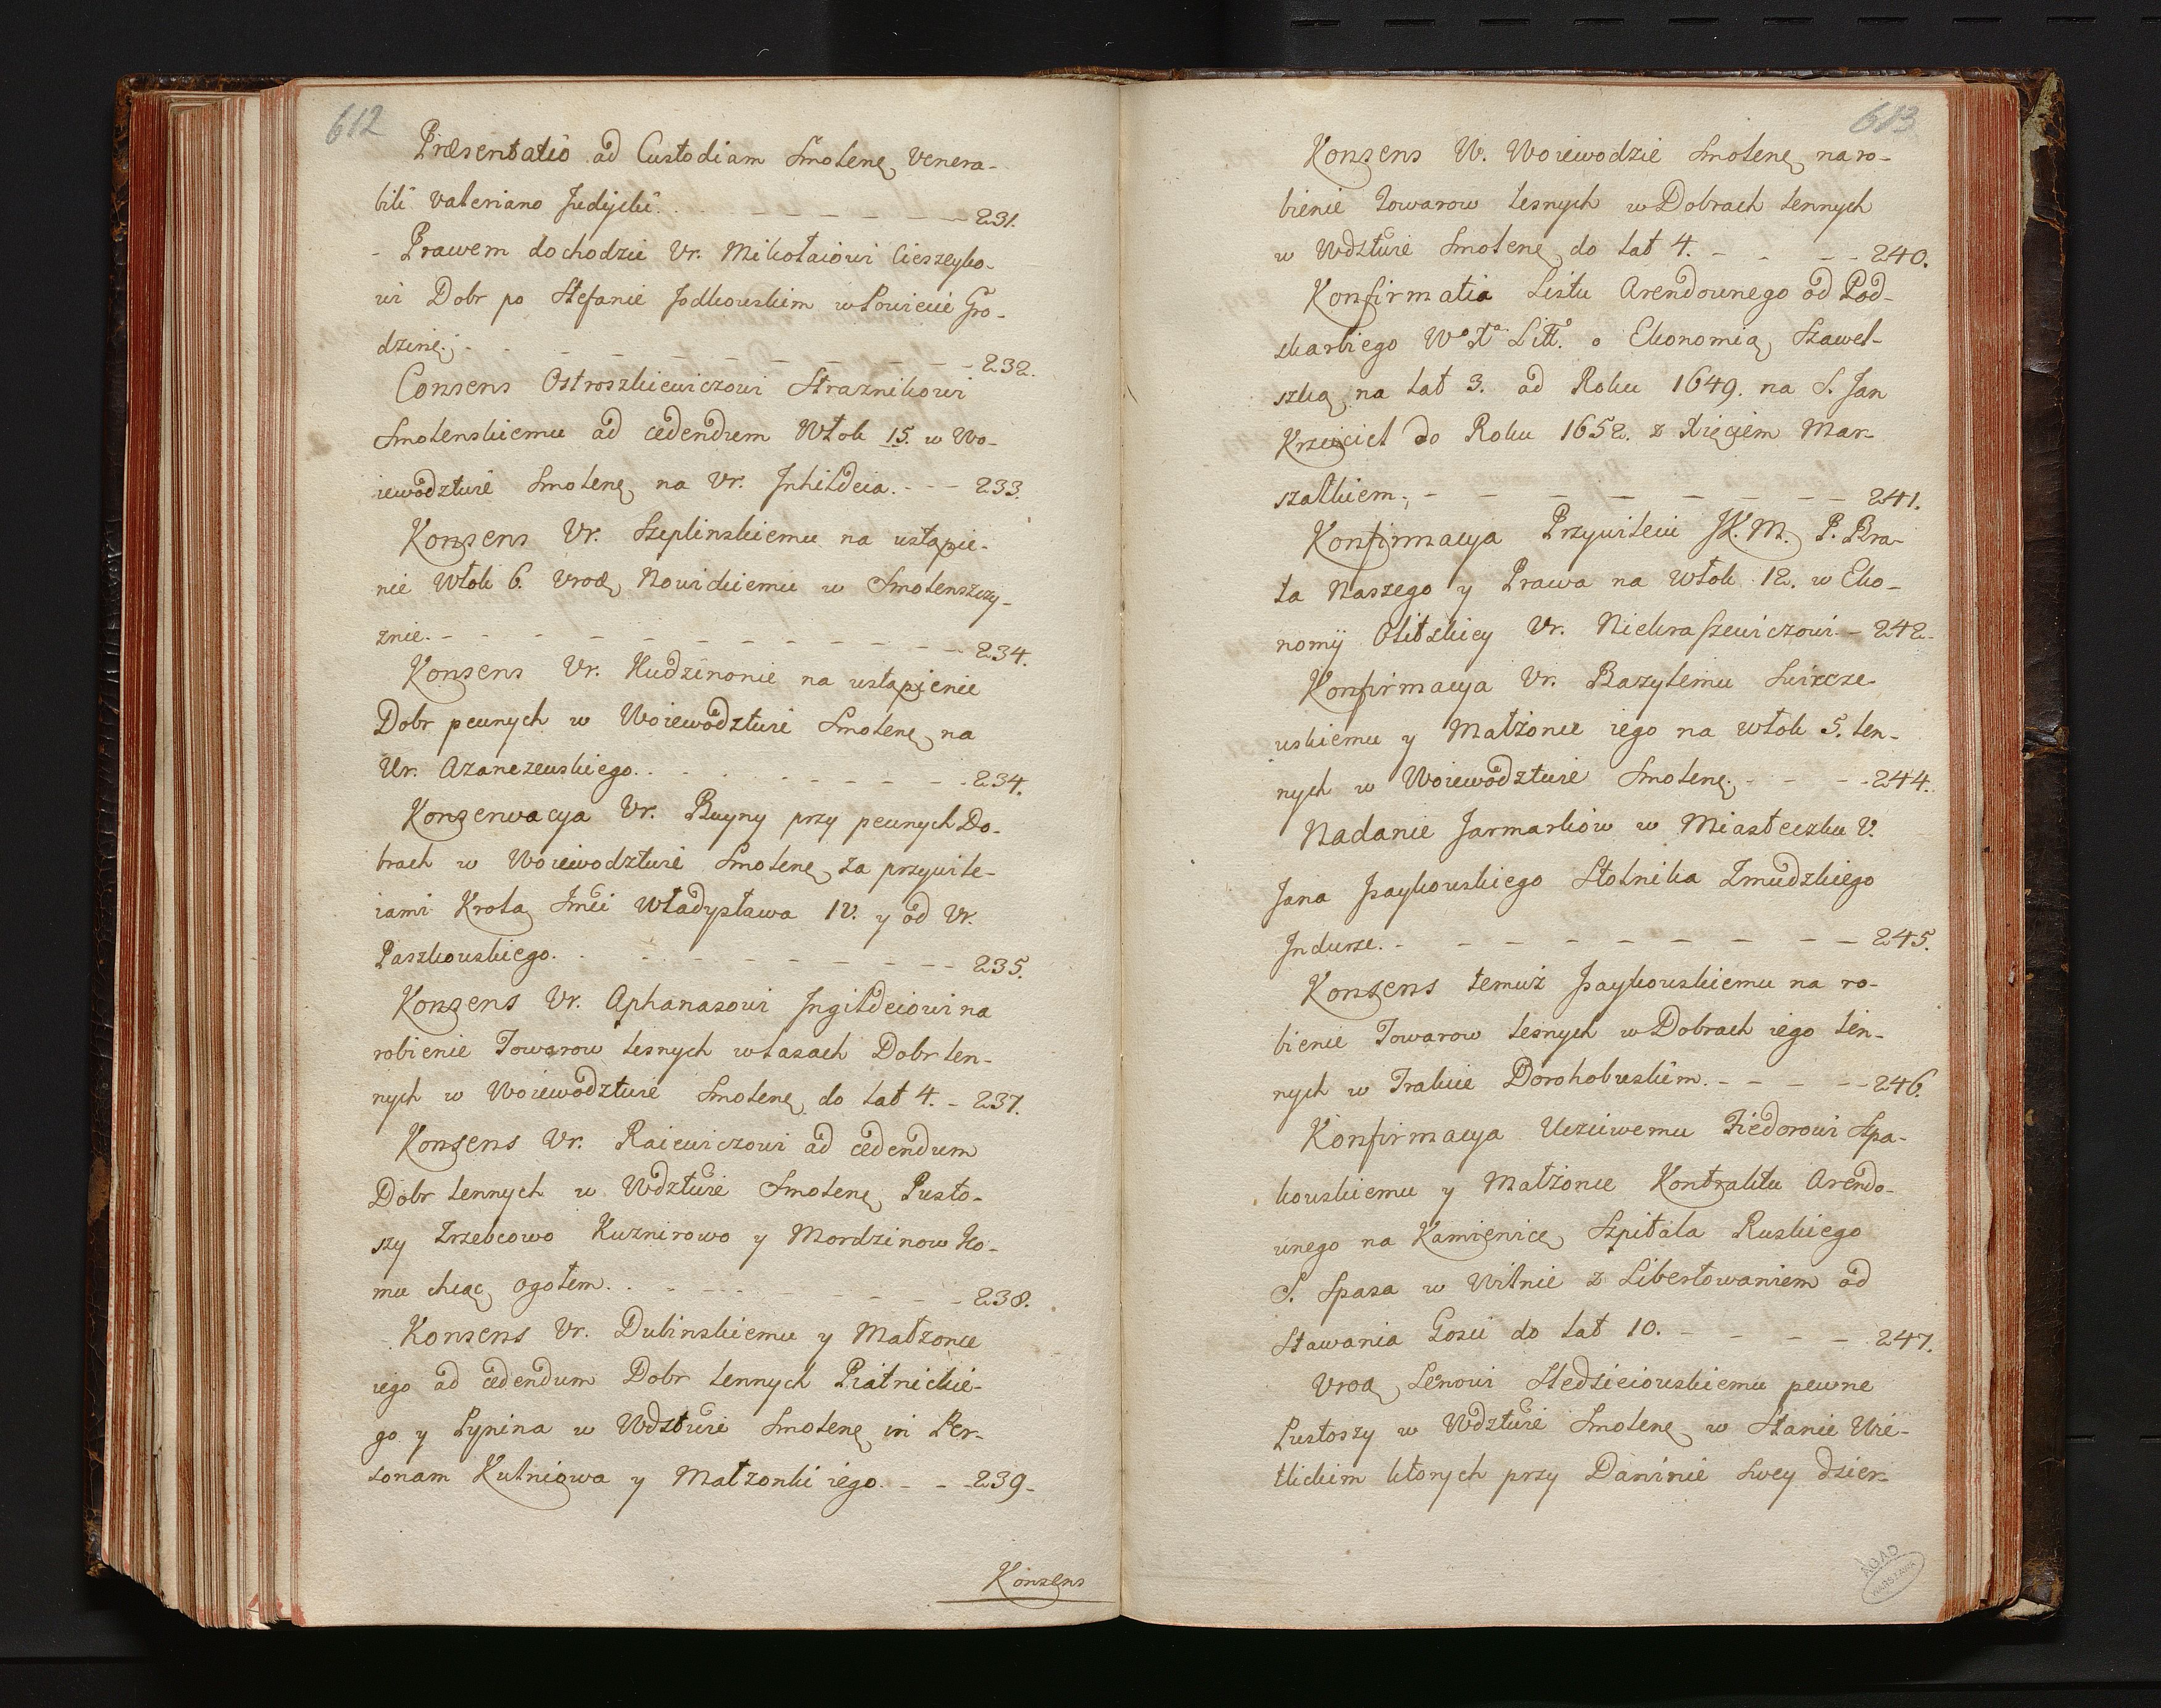 612
Præsentatio ad Custodiam Smolenę Venera-
bili Valeriano Judijcki. . - - - - - - 231.
- Prawem dochodzie Vr. Mikołaiowi Cieszeyko-
wi Dobr po Stefanie Jodkowskim w Powiecie Gro-
dzinę. - - - - - - - - - 232.
Consens Ostroszkiewiczowi Straznikowi
Smolenskiemu ad cedendum Włok 15. w Wo-
iewodztwie Smolenę na Vr. Jnhildeia. - - - 233.
Konsens Vr. Szeplinskiemu na ustąpie-
nie Włok 6. Vroę Nowickiemu w Smolenszczy-
znie. - - - - - - - - - 234.
Konsens Vr. Kudzinonie na ustąpienie
Dobr pewnych w Woiewodztwie Smolenę na
Ur. Azanczewskiego. . - - - - - - 234.
Konserwacya Vr. Buyny przy pewnych Do-
brach w Woiewodztwie Smolenę za przywile-
iami Krola Jmći Władysława IV. y od Vr.
Paszkowskiego. . - - - - - - - 235.
Konsens Vr. Aphanasowi Jngildeiowi na
robienie Towarow lesnych w lasach Dobr len-
nych w Woiewodztwie Smolenę do lat 4. - 237.
Konsens Vr. Raiewiczowi ad cedendum
Dobr lennych w Wdztwie Smolenę Pusto-
szy Zrzebcowo Kuznirowo y Mordzinow ko-
mu chcąc ogołem. . - - - - - - 238.
Konsens Vr. Dubinskiemu y Małzonce
iego ad cedendum Dobr lennych Piatnickie-
go y Pynina w Wdztwie Smolenę in Per-
sonam Kulniowa y Małzonki iego. - - - 239.
Konsens
613
Konsens W. Woiewodzie Smolenę na ro-
bienie Towarow lesnych w Dobrach lennych
w Wdztwie Smolenę do lat 4. - - - - 240.
Konfirmatia Listu Arendownego od Pod-
skarbiego Wo Xa Litt. o Ekonomią Szawel-
szką na lat 3. ad Roku 1649. na S. Jan
Krzciciel do Roku 1652. z Xięciem Mar-
szałkiem. - - - - - - - - 241.
Konfirmacya Przywileiu JK. M. P. Bra-
ta Naszego y Prawa na Włok 12. w Eko-
nomij Olitskiey Vr. Niekraszewiczowi. - 242.
Konfirmacya Vr. Bazylemu Swircze-
wskiemu y Małżonce iego na włok 5. len-
nych w Woiewodztwie Smolenę. - - - 244.
Nadanie Jarmarkow w Miasteczku V.
Jana Jsaykowskiego Stolnika Zmudzkiego
Jndurze. - - - - - - - - - 245.
Konsens temuż Jsaykowskiemu na ro-
bienie Towarow lesnych w Dobrach iego len-
nych w Trakcie Dorohobuskim. - - - - 246.
Konfirmacya Uczciwemu Fiedorowi Spa-
kowskiemu y Małżonce Kontraktu Arendo-
wnego na Kamienicę Szpitala Ruskiego
S. Spasa w Wilnie z Libertowaniem od
Stawania Gosci do lat 10. - - - - 247.
Vroa Senowi Stedzieiowskiemu pewne
Pustoszy w Wdztwie Smolenę w Stanie Wie-
tlickim ktorych przy Daninie swey dzier-
AGAD
WARSZAWA